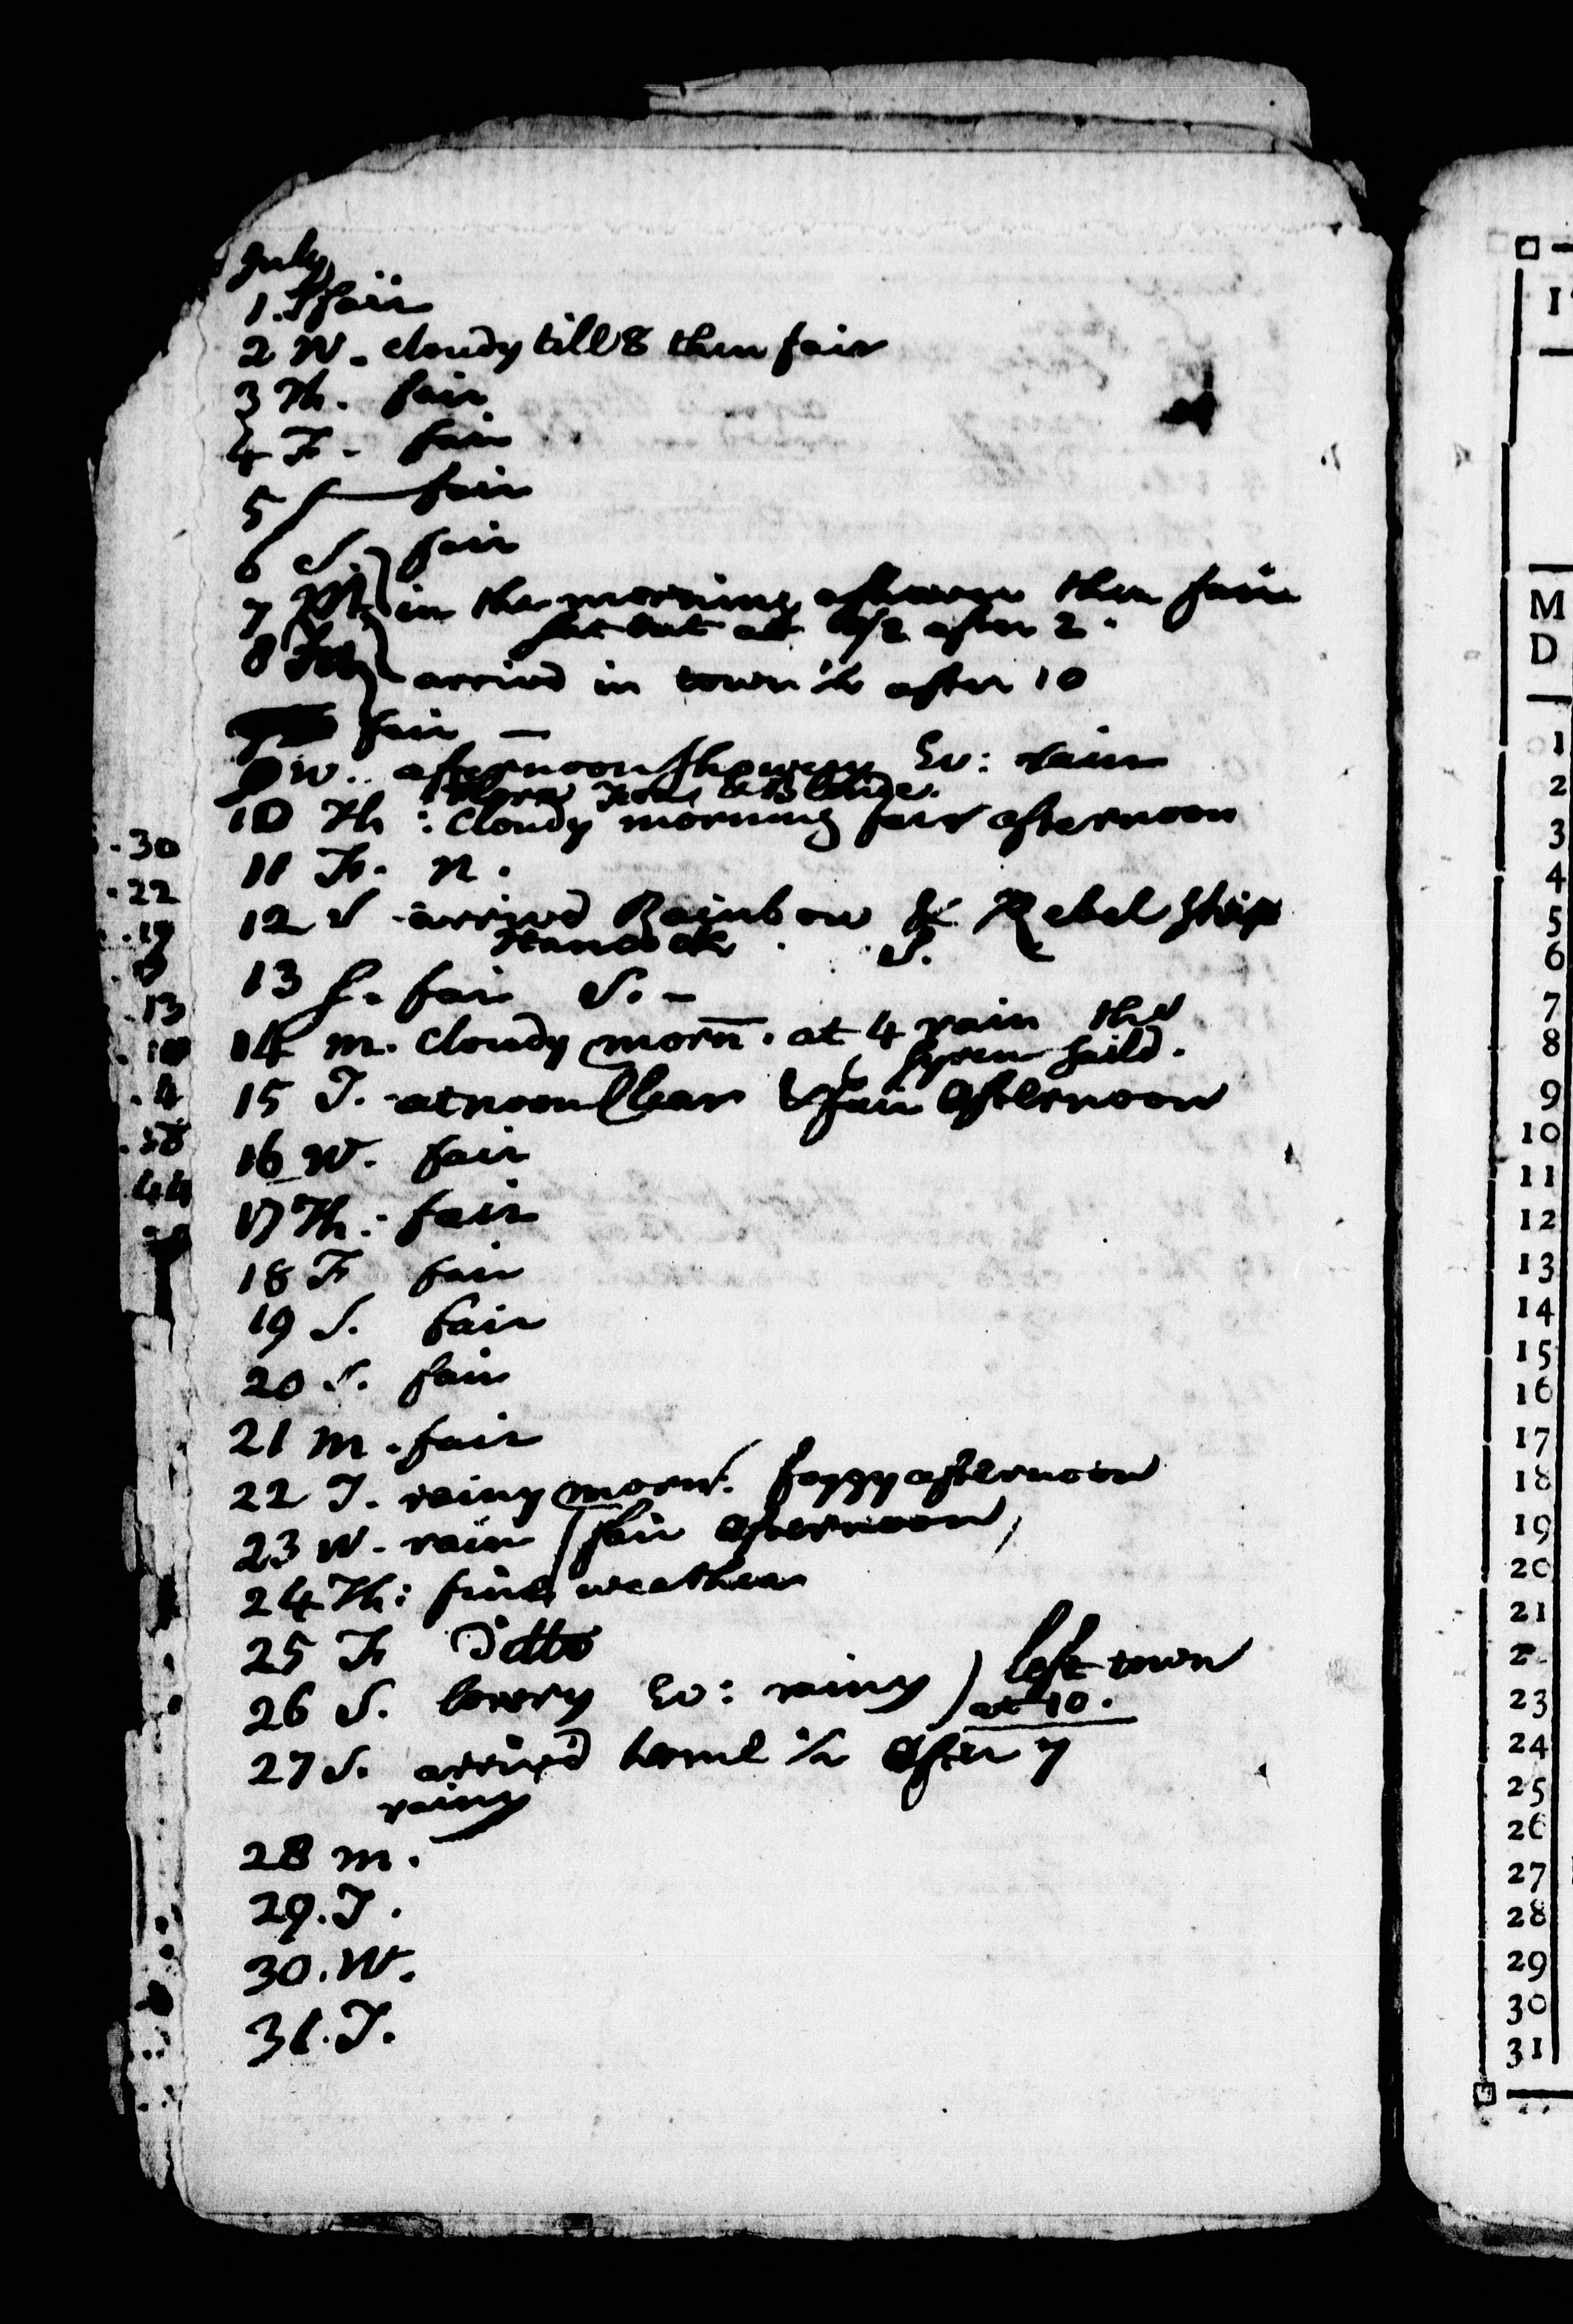 July
1. T fair
2 W. cloudy till 8 then fair
3 Th. fair
4 F. fair
5 S fair
6 S. fair
7 M. in the morning then fair
set out at 1/2 after 2.
8 Tu arrived in town 1/2 after 10
fair —
9 W.. afternoon showery Ev: rain
Flora & Blonde.
10 Th : cloudy morning fair afternoon
11 F. n.
12 S arrived Rainbow & Rebel ship
Hancock S.
13 S. fair S. -
14 M. cloudy morn. at 4 rain the
Syren saild.
15 T. at noon Clear & fair afternoon
16 W. fair
17 Th. fair
18 F fair
19 S. fair
20 S. fair
21 M. fair
22 T. rainy morn. foggy afternoon
23 W. rain fair afternoon
24 Th: fine weather
25 F Ditto
26 S. lowry Ev: rainy ) left town
at 10.
27 S. arrived home 1/2 after 7
rainy
28 M.
29. T.
30. W.
31. T.
30
22
19
13
10
4
58
44
M
D
1
2
3
4
5
6
7
8
9
10
11
12
13
14
15
16
17
18
19
20
21
23
24
25
26
27
28
29
30
31